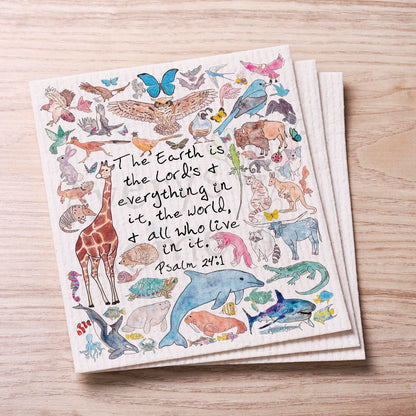 The Earth is
the Lord's +
everything in
it, the world,
+ all who live
in it.
Psalm 24:1